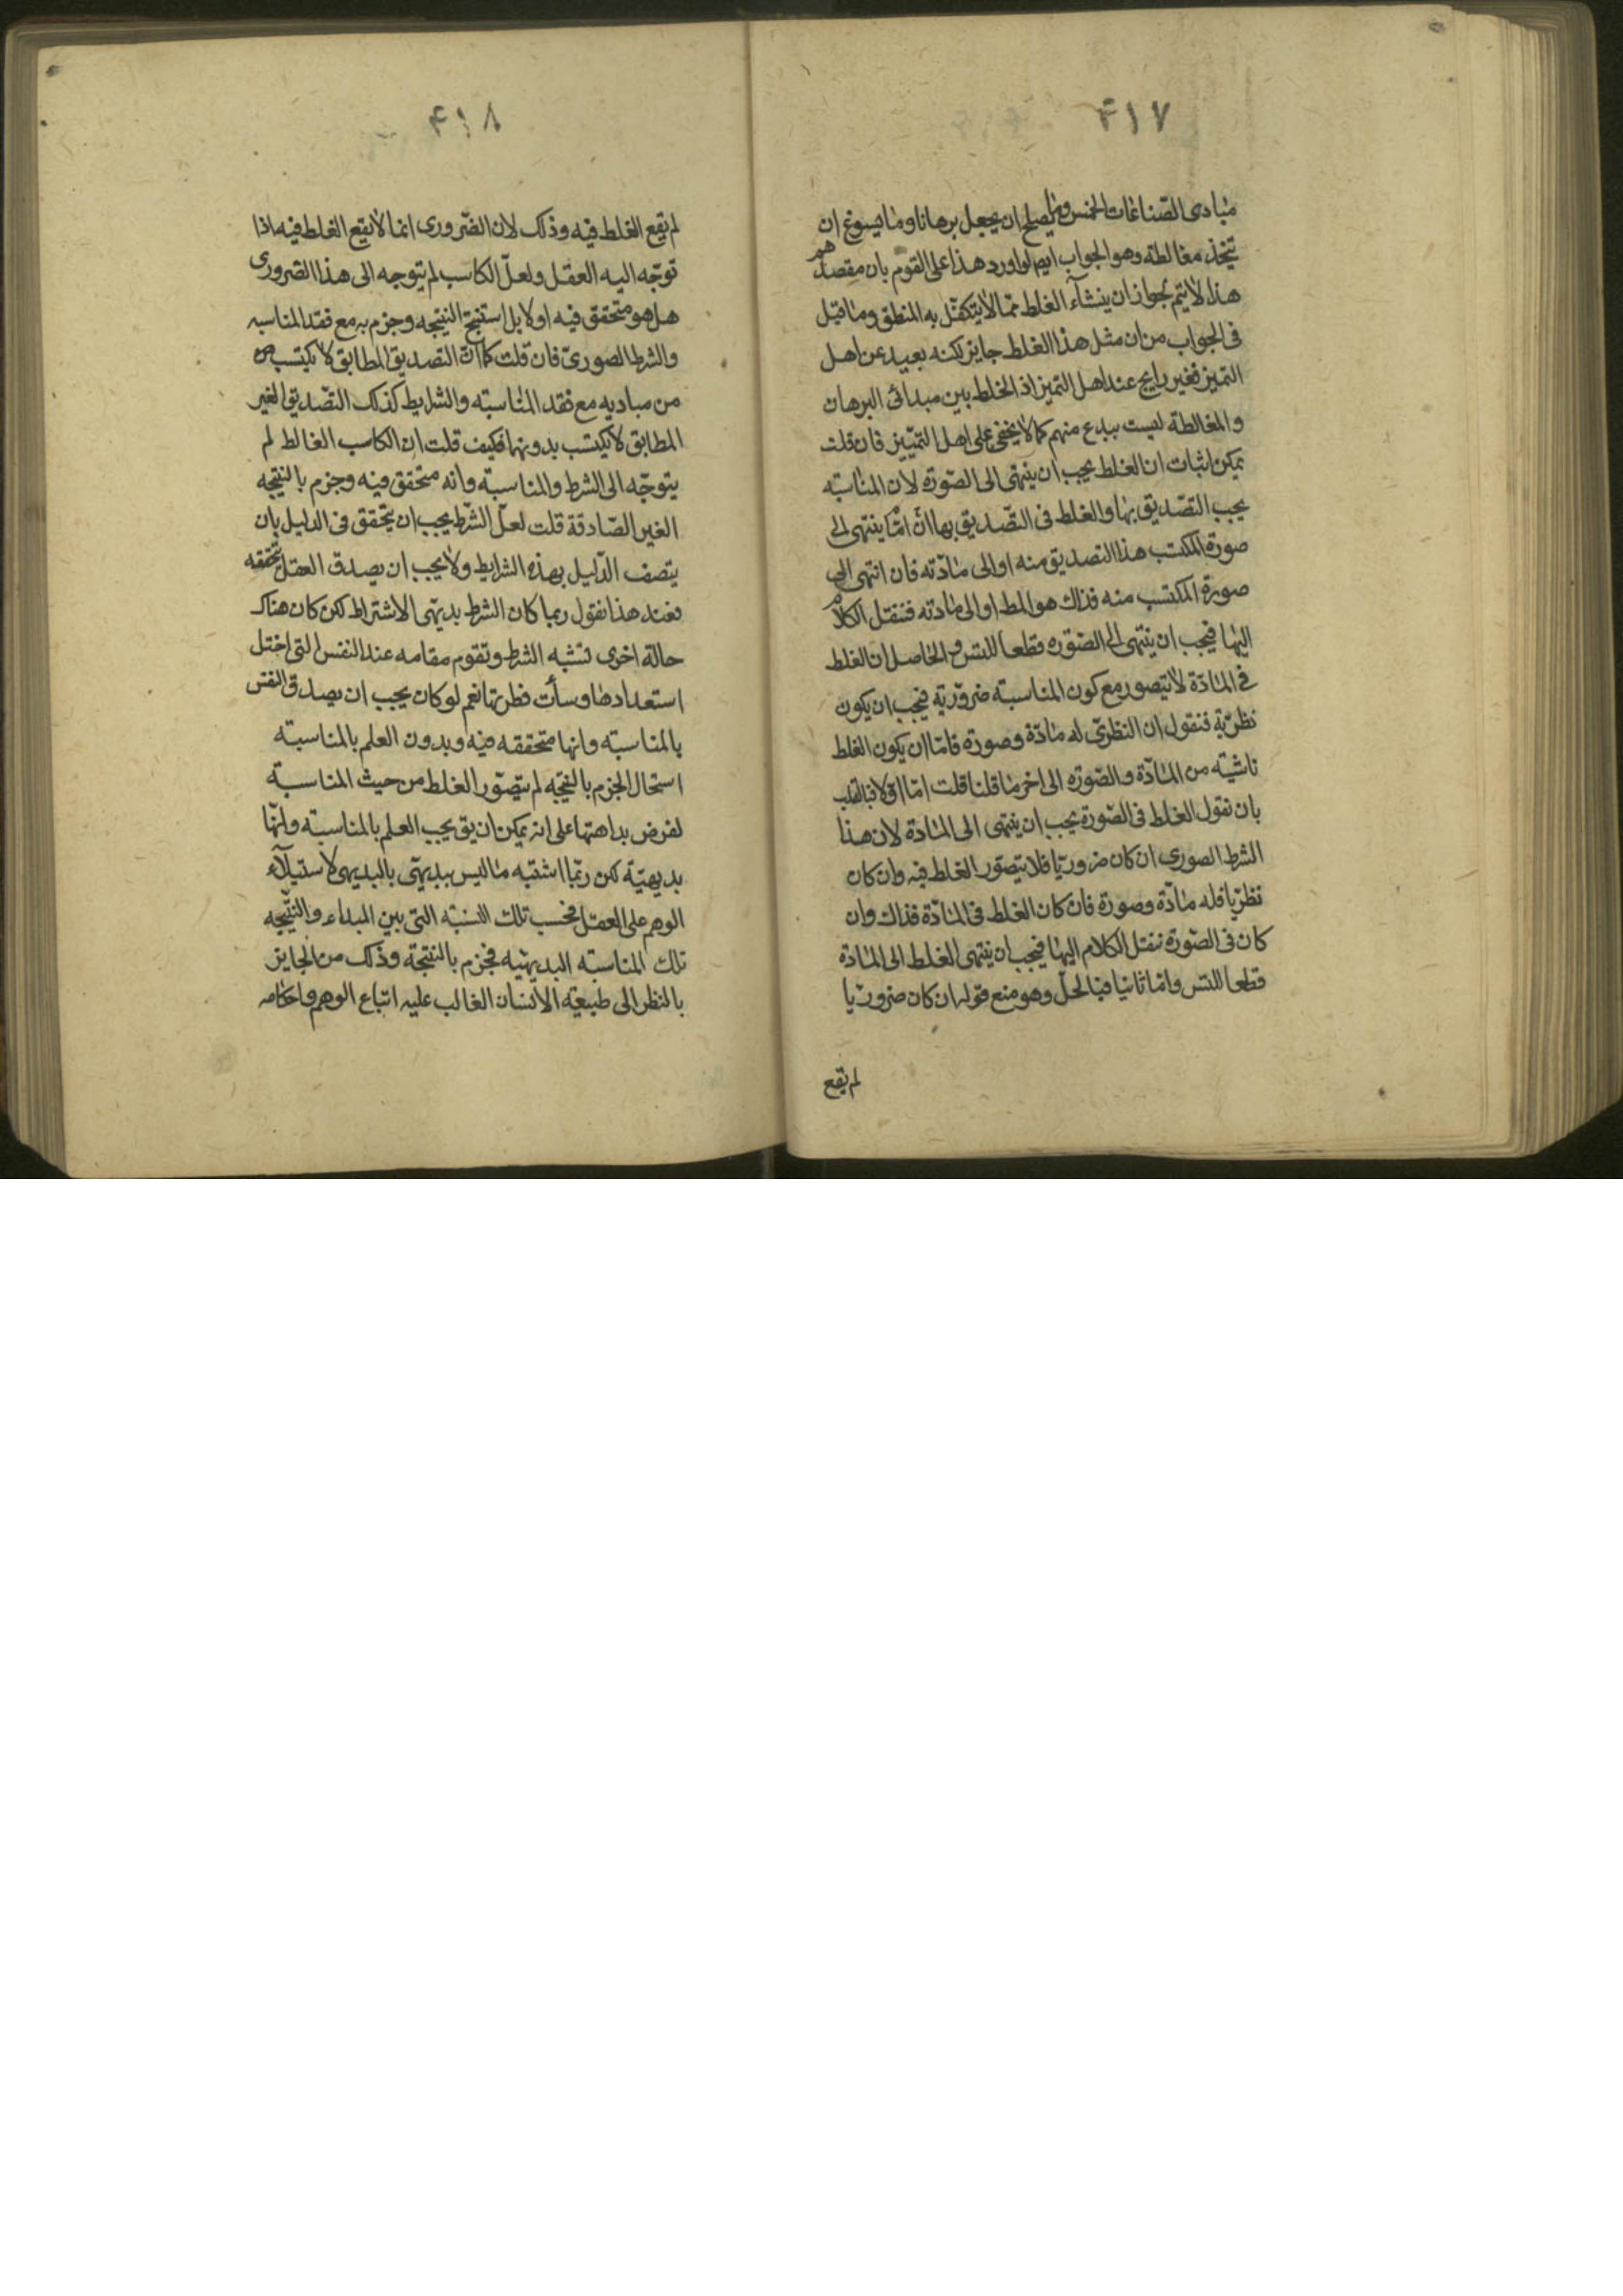 ۴۱۷
مبادی الصناعات الخمس وما یصلح ان یجعل برهانا وما یسوغ ان
تیخذ مغالطة وهو الجواب ایض لو اورد هذا علی القوم بان مقصدهم
هذا لا یتم بجواز ان ینشاء الغلط مما لا یتکفل به المنطق وما قیل
فی الجواب من ان مثل هذا الغلط جایز لکنه بعید عن اهل
التمیز فغیر رایج عند اهل التمیز اذ الخلط بین مبدائی البرهان
والمغالطة لیست ببدع منهم کما لا یخفی علی اهل التمییز فان قلت
یمکن اثبات ان الغلط یجب ان ینتهی الی الصورة لان المناسبة
یجب التصدیق بها والغلط فی التصدیق بها ان اما ینتهی الی
صورة المکتسب هذا التصدیق منه او الی مادته فان انتهی الی
صورة المکتسب منه فذاک هو المط او الی مادته فننقل الکلام
الیها فیجب ان ینتهی الی الصورة قطعا للتس والحاصل ان الغلط
فی المادة لا یتصور مع کون المناسبة ضروریة فیجب ان یکون
نظریة فنقول ان النظری له مادة وصورة فاما ان یکون الغلط
ناشیة من المادة والصورة الی اخر ما قلنا قلت اما اولا فبالقلب
بان نقول الغلط فی الصورة یجب ان ینتهی الی المادة لان هذا
الشرط الصوری ان کان ضروریا فلا یتصور الغلط فیه وان کان
نظریا فله مادة وصورة فان کان الغلط فی المادة فذاک وان
کان فی الصورة ننقل الکلام الیها فیجب ان ینتهی الغلط الی المادة
قطعا للتس واما ثانیا فبالحل وهو منع قوله ان کان ضروریا
لم یقع
۴۱۸
لم یقع الغلط فیه وذلک لان الضروری انما لا یقع الغلط فیه اذا
توجه الیه العقل ولعل الکاسب لم یتوجه الی هذا الضروری
هل هو متحقق فیه او لا بل استنتج النتیجه وجزم به مع فقد المناسبه
والشرط الصوری فان قلت کما ان التصدیق المطابق لا یکتسب
من مبادیه مع فقد المناسبة والشرایط کذلک التصدیق الغیر
المطابق لا یکتسب بدونها فکیف قلت ان الکاسب الغالط لم
یتوجه الی الشرط والمناسبة وانه متحقق فیه وجزم بالنتیجه
الغیر الصادقة قلت لعل الشرط یجب ان یتحقق فی الدلیل بان
یتصف الدلیل بهذه الشرایط ولا یجب ان یصدق العقل بتحققه
فعند هذا نقول ربما کان الشرط بدیهی الاشتراط لکن کان هناک
حالة اخری تشبه الشرط وتقوم مقامه عند النفس التی اختل
استعدادها وسأت فطرتها نعم لو کان یجب ان یصدق النفس
بالمناسبة وانها متحققه فیه وبدون العلم بالمناسبة
استحال الجزم بالنتیجه لم یتصور الغلط من حیث المناسبة
لفرض بداهتها علی انه یمکن ان یق یجب العلم بالمناسبة وانها
بدیهیة لکن ربما اشتبه ما لیس ببدیهی بالبدیهی لاستیلآء
الوهم علی العقل فیحسب تلک النسبة التی بین المبداء والنتیجه
تلک المناسبة البدیهیه فیجزم بالنتیجة وذلک من الجایز
بالنظر الی طبیعة الانسان الغالب علیه اتباع الوهم واحکامه